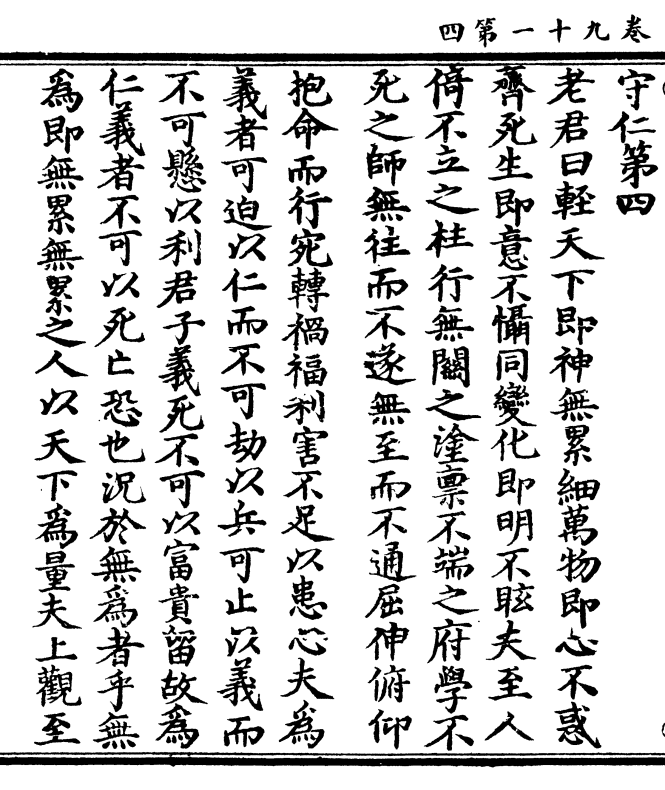 卷九十一第四
守仁第四
老君曰輊天下即神無累細萬物即心不惑
齊死生即意不懾同變化即明不眩夫至人
倚不立之柱行無關之塗禀不端之府學不
死之師無往而不遂無至而不通屈伸俯仰
抱命而行宛轉禍福利害不足以患心夫為
義者可迫以仁而不可劫以兵可止以義而
不可懸以利君子義死不可以富貴留故為
仁義者不可以死亡恐也況於無為者乎無
為即無累無累之人以天下為量夫上觀至